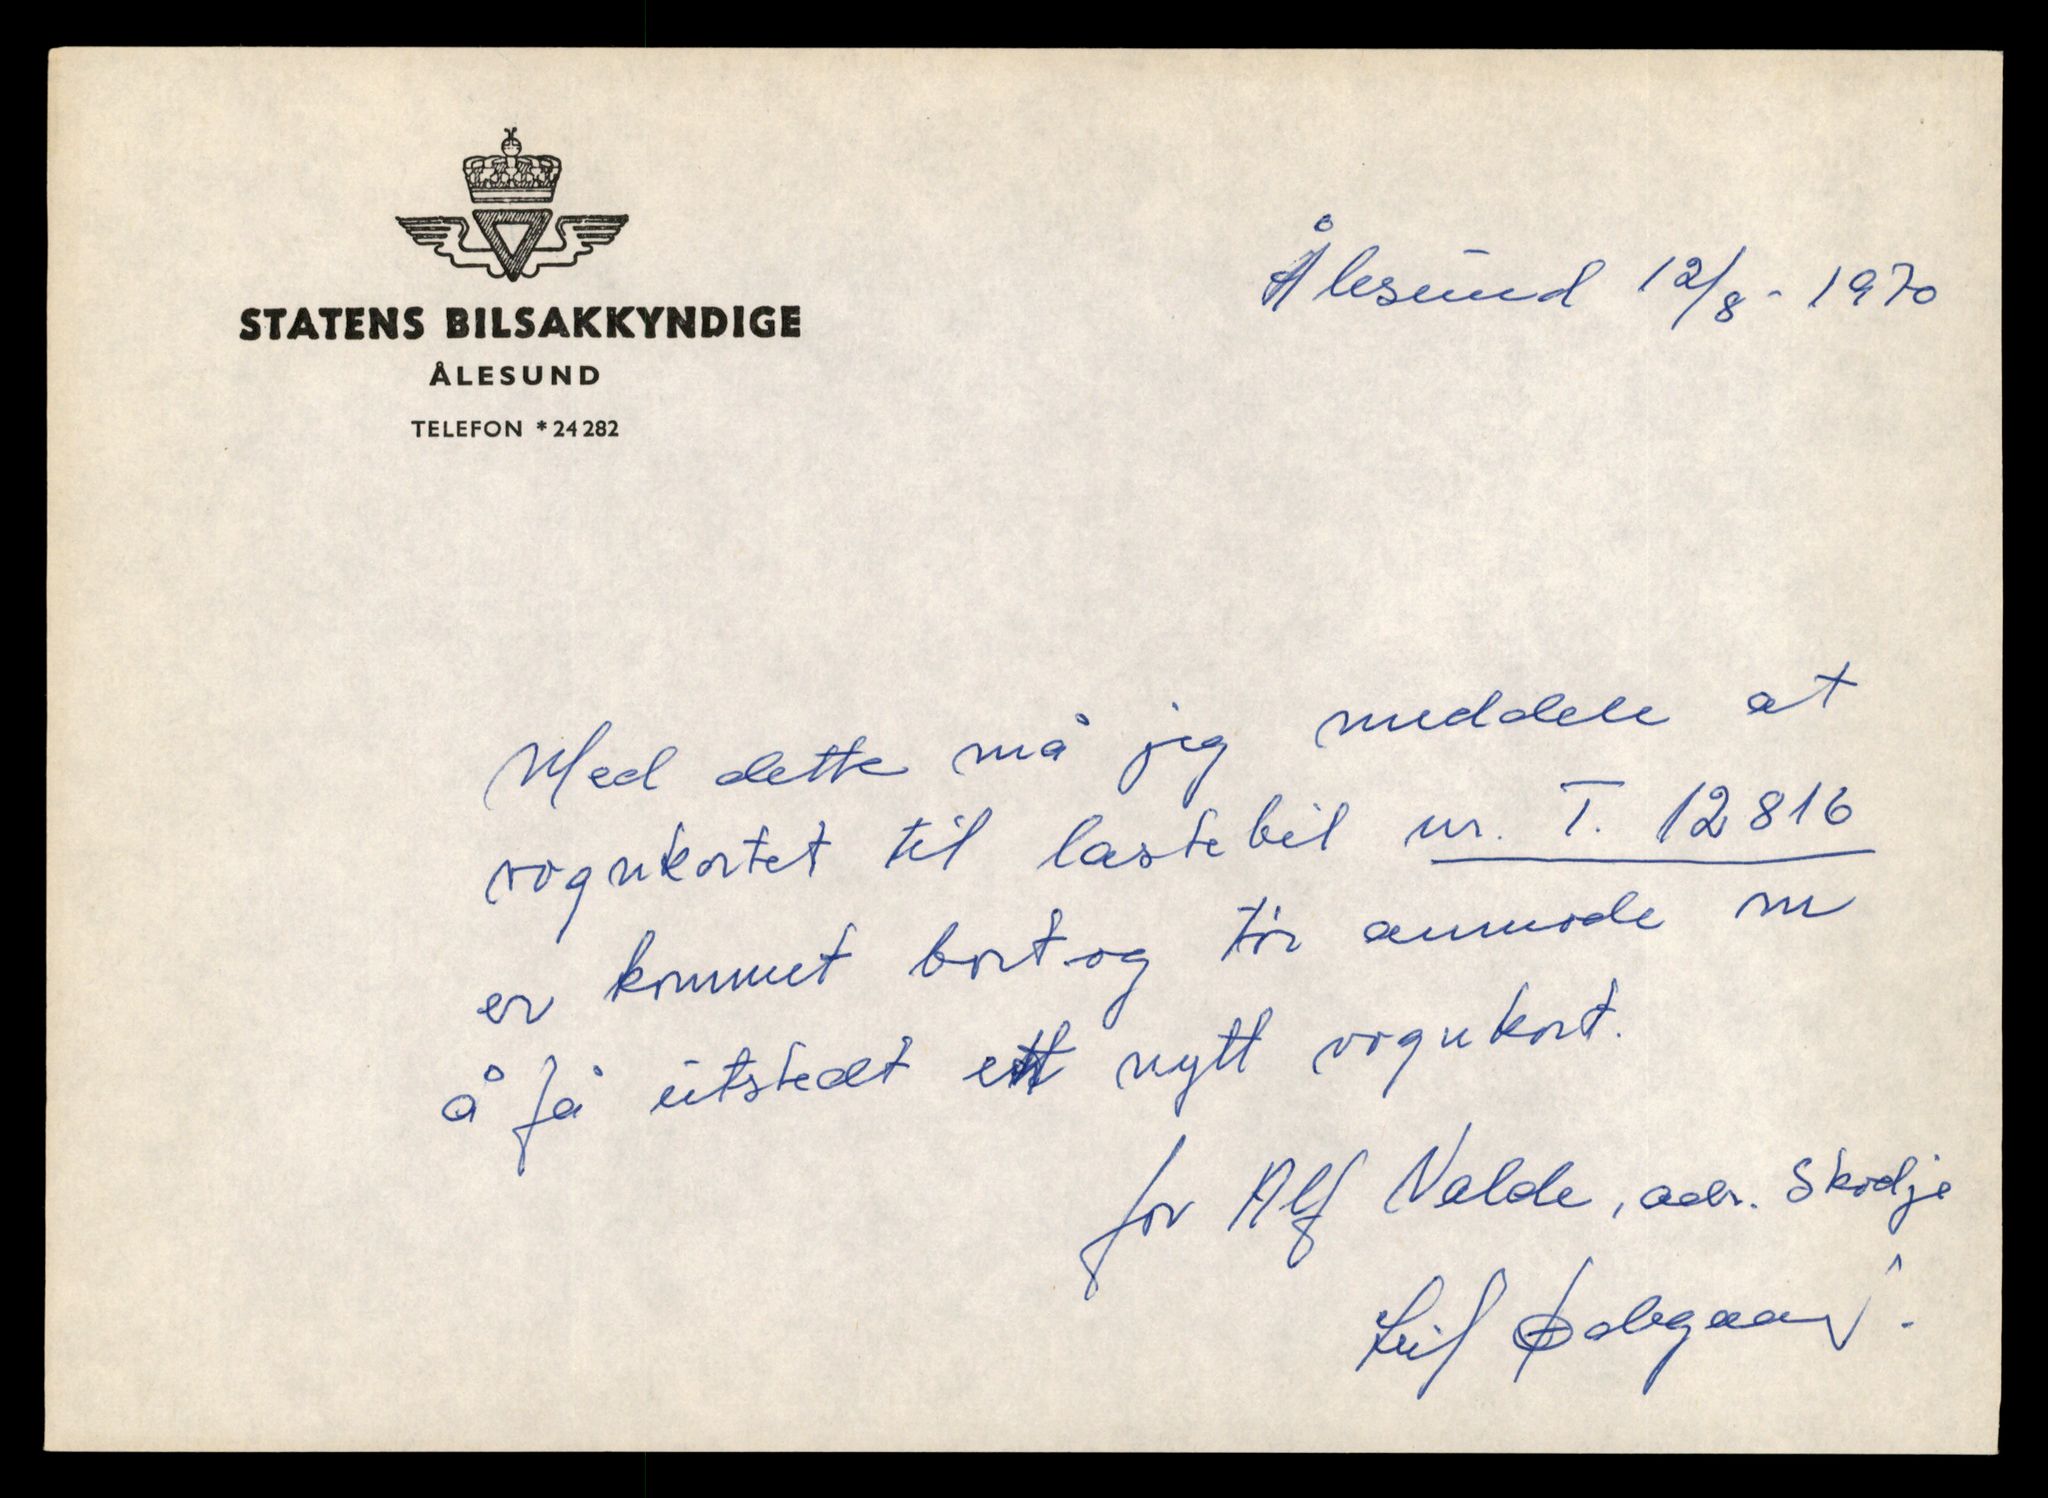 STATENS BILSAKKYNDIGE
ÅLESUND
TELEFON *24282
Ålesund 12/8 - 1970
Med dette må jeg meddele at
vognkortet til lastebil nr. T. 12816
er kommet bort og tør anmode om
å få utstedt ett nytt vognkort.
for Alf Valde, adr. Skodje
Leif Ødegaard.